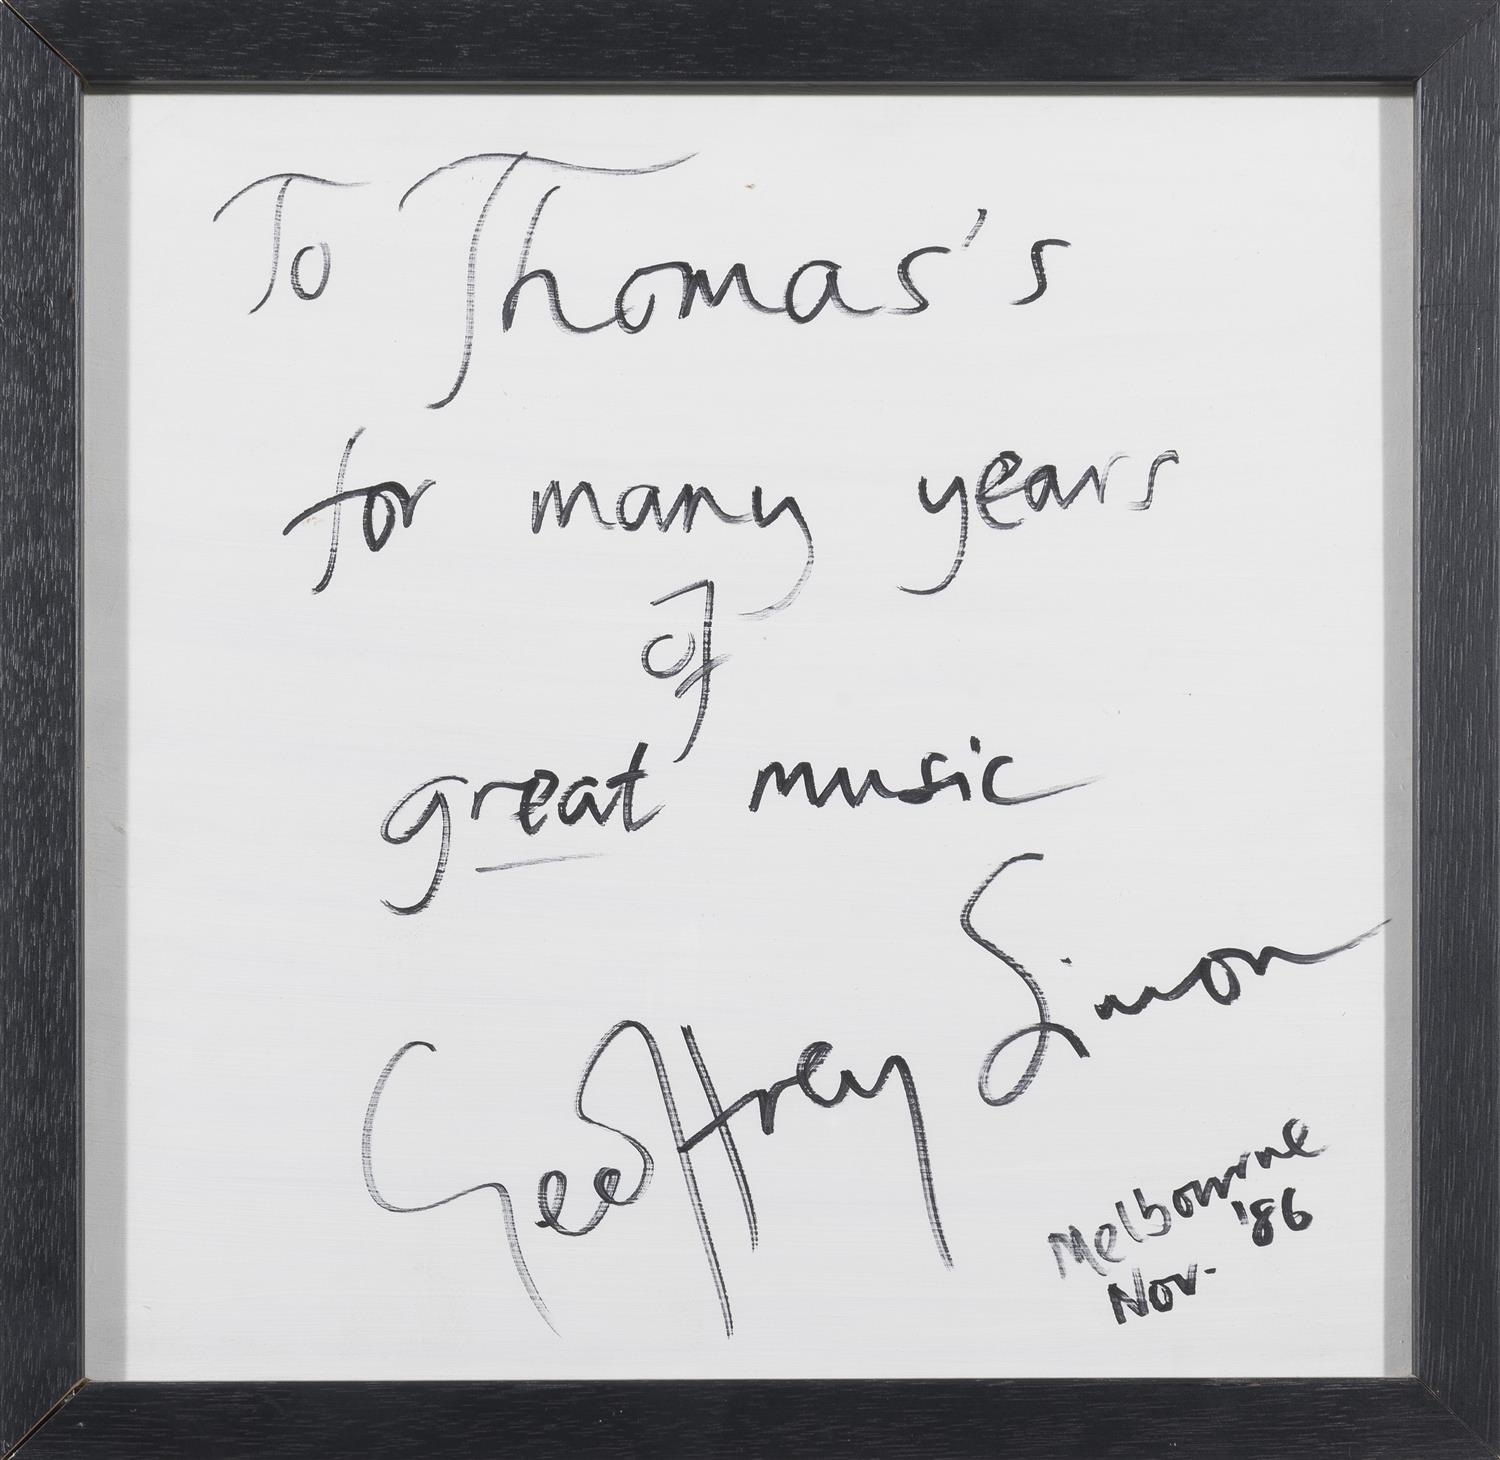 To Thomas's
for many years
of
great music
Geoffrey Simon
Melbourne
Nov. '86